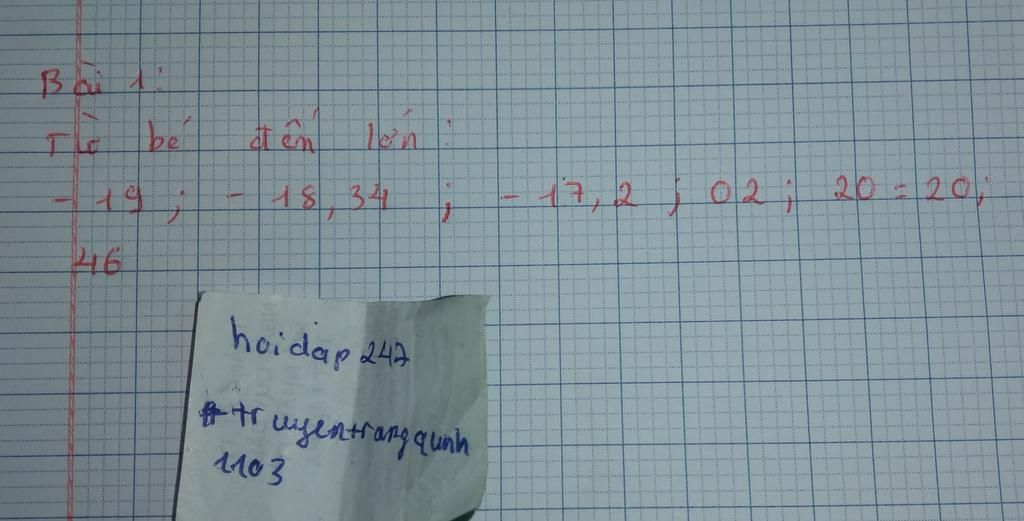 Bài 1:
Từ bé đến lớn:
- 19 ; - 18,34 ; - 17,2 ; 02 ; 20 = 20;
46
hoidap 247
#truyentrangquynh
1103